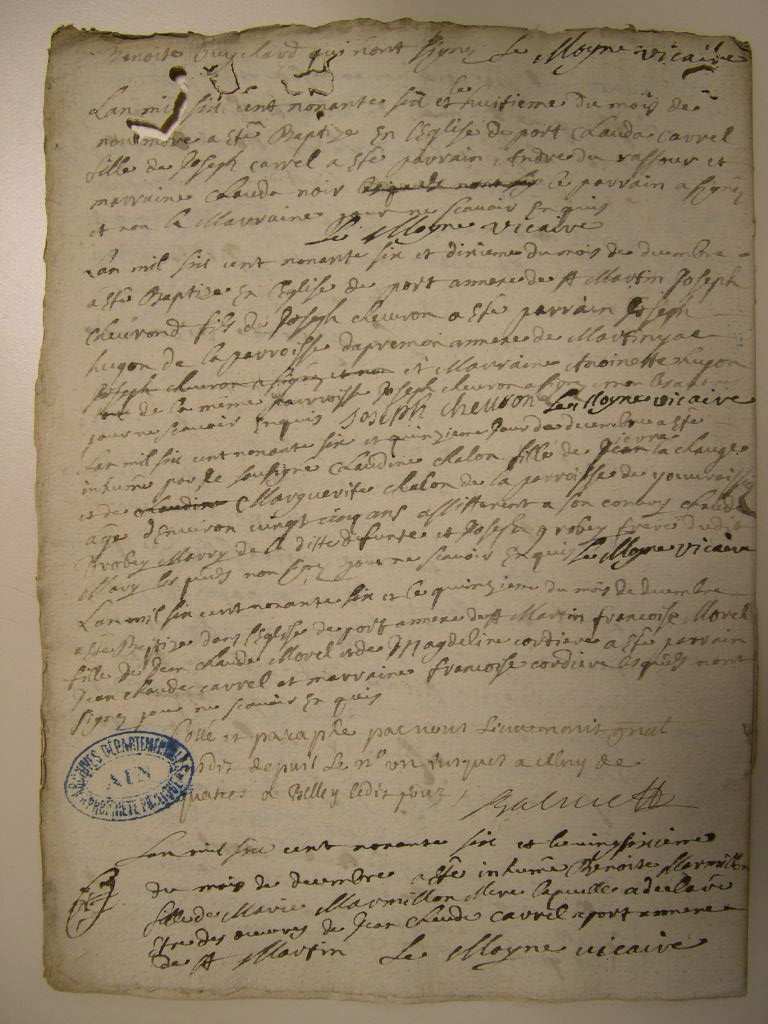 Benoite Guychard qui nont signe Le Moyne vicaire
Lan mil six cent nonante six et le huitieme du mois de
novembre a esté Baptizé En l'Eglise de port Clauda Carrel
fille de Joseph Carrel a esté parrain Andre du et
marraine Clauda noir ce parrain a signé
et non la Marraine pour ne scavoir Enquis
Le Moyne vicaire
Lan mil six cent nonante six et dixieme du mois de decembre
a esté Baptizé En l'Eglise de port annexe de st Martin Joseph
Chevrond fils de Joseph chevron a esté parrain Joseph
hugon de la parroisse annexe de
Joseph chevron a signé et non et Marraine Antoinette hugon
de la même parroisse Joseph chevron a signé non
pour ne scavoir Enquis Joseph Chevron Le Moyne vicaire
Lan mil six cent nonante six et quinzieme Jour de decembre a esté
inhumé par le soussigné Claudine Chalon fille de pierre
et de claudine Marguerite chalon de la parroisse de
age d'Environ vingt cinq ans assistent a son convoy Claude
grobey Marry de la ditte defunte et Joseph grobey frere dudit
Mary lesquels non signe pour ne scavoir Enquis Le Moyne vicaire
Lan mil six cent nonante six et le quinzieme du mois de decembre
a esté Baptize dans l'Eglise de port annexe de st Martin francoise Morel
fille de Jean Claude Morel et de Magdeline cordiere a esté parrain
Jean Claude carrel et marraine francoise cordiere lesquels nont
signez pour ne scavoir En quis
Cotté et paraphé par nous
depuis le n° un jusques a
quatre a Belley ledit jour
Lan mil six cent nonante six et le vingsixieme
du mois de decembre a esté inhumé Benoite Marmillon
fille de Marie Marmillon Mere laquelle a declaré
Etre des oeuvres de Jean Claude Carrel a port annexe
de st Martin Le Moyne vicaire
ARCHIVES DÉPARTEMENTALES
AIN
PROPRIÉTÉ PUBLIQUE